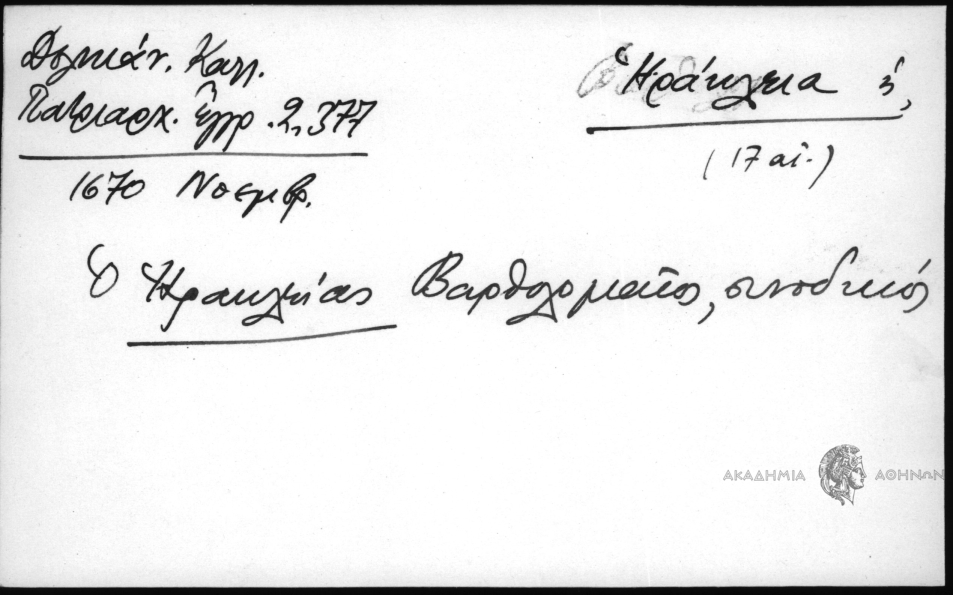 Δελικάν. Καλλ.
Πατριαρχ. Ἔγγρ. 2, 377
1670 Νοεμβρ.
Ἡράκλεια ἡ,
(17 αἰ.)
Ὁ Ἡρακλείας Βαρθολομαῖος, συνοδικός
ΑΚΑΔΗΜΙΑ ΑΘΗΝΩΝ